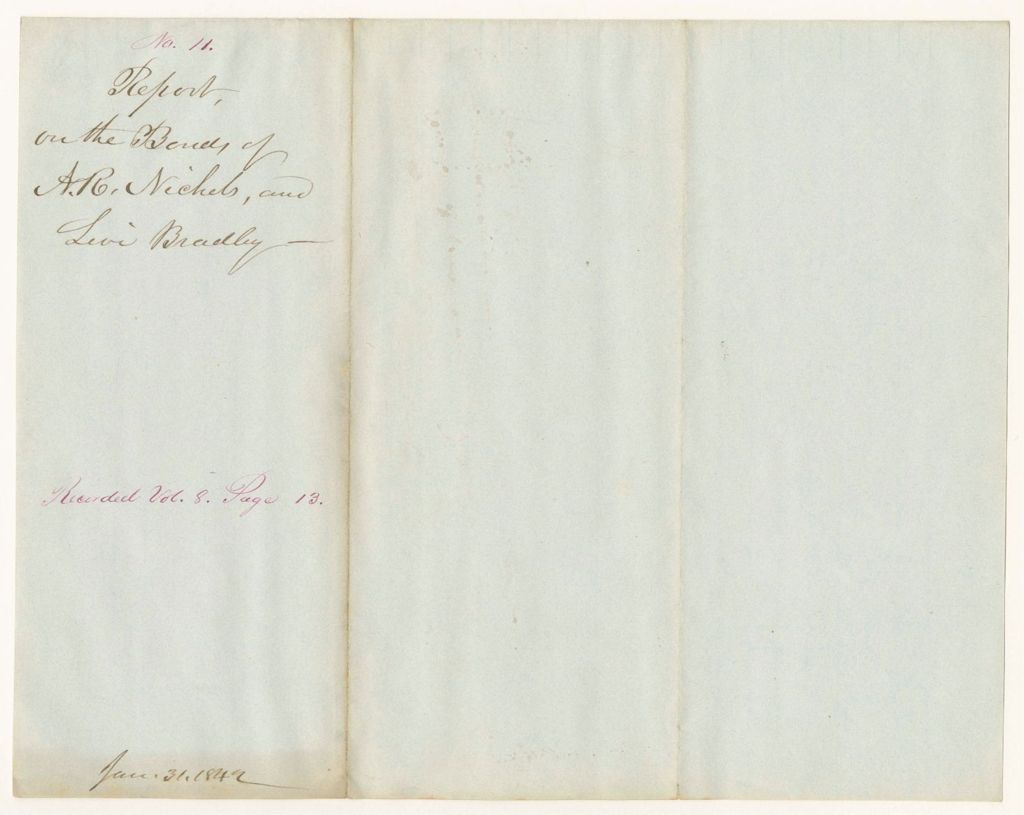 No. 11.
Report,
on the Bonds of
A. R. Nichols, and
Levi Bradley —
Recorded Vol. 8. Page 13.
Jan. 31. 1842